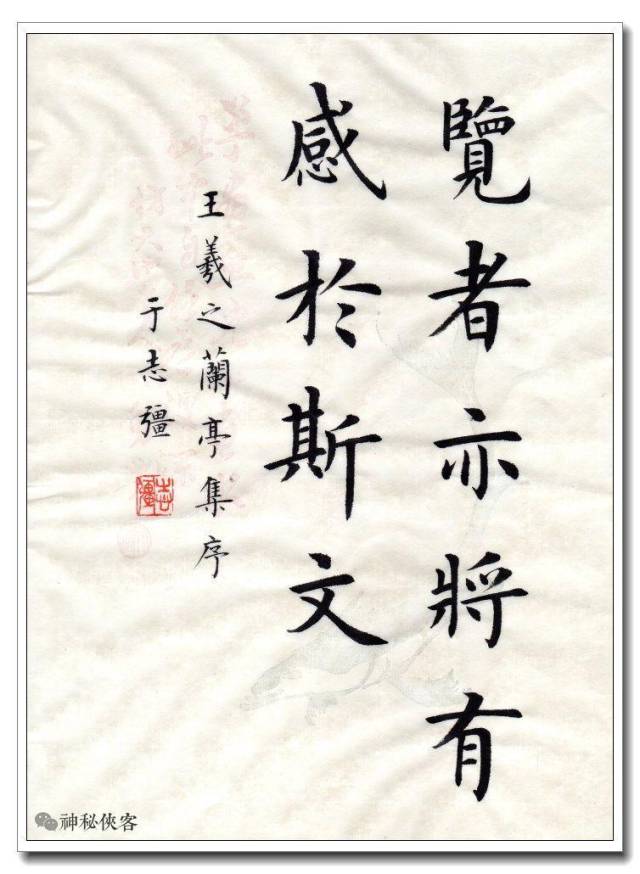 覽者亦將有
感於斯文
王羲之蘭亭集序
于志彊
志彊
神秘俠客